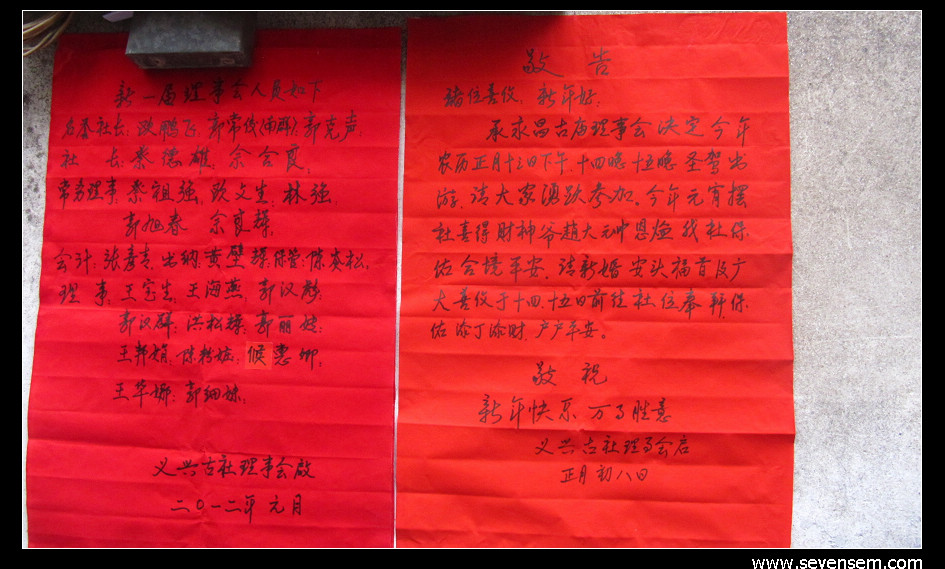 新一届理事会人员如下
名誉社长:欧鹏飞,郭常伐(南群)郭克声,
社 长:蔡德雄,余会良,
常务理事,蔡祖强,欧文生,林强,
郭旭春 余良辉,
会计:张彦吉,出纳:黄壁辉,保管:陈奕松,
理 事:王宝生,王海燕,郭汉
郭汉群:洪松辉:郭丽
王邦娟,陈,候惠卿,
王华娜:郭细妹,
义兴古社理事会启
二〇一二年元月
敬 告
诸位善信,新年好:
承永昌古庙理事会决定今年
农历正月十三日下午,十四晚十五晚圣驾出
游,请大家涌跃参加。今年元宵摆
社喜得财神爷赵大元帅恩临我社保
佑合境平安。请新婚安头福首及广
大善信于十四,十五日前往社位奉拜保
佑添丁添财,户户平安。
敬 祝
新年快乐 万事胜意
义兴古社理事会启
正月初八日
www.sevensem.com